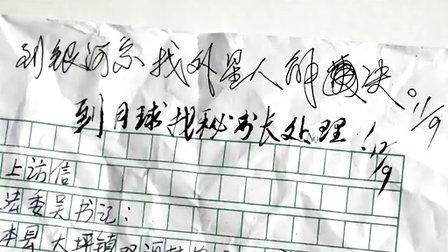 到银河系找外星人解决。11/9
到月球找秘书长处理!12/9
上访信
法委吴书记:
本县大坪镇双河村